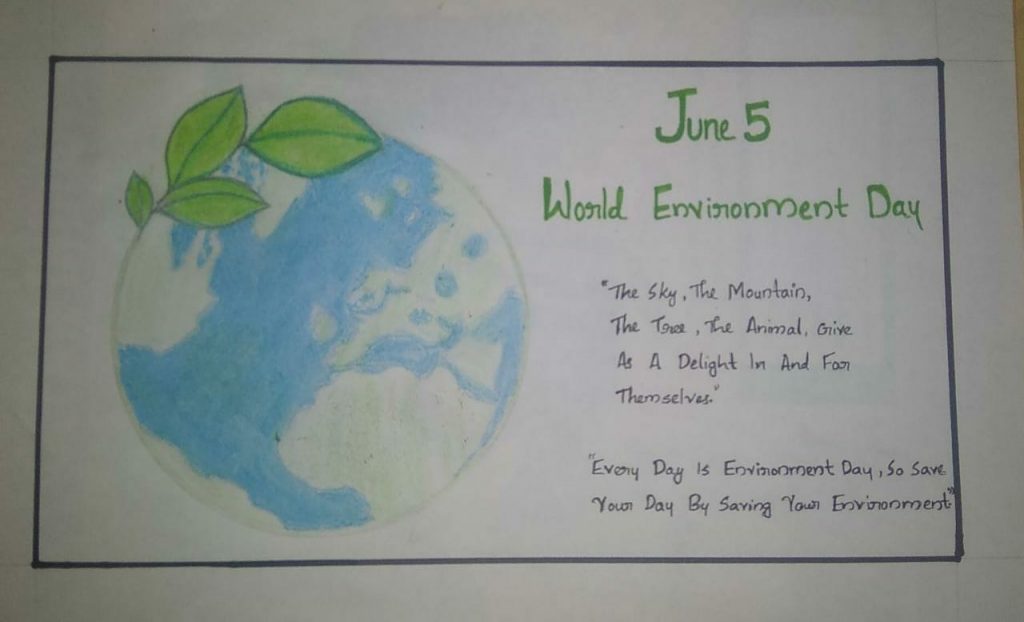 June 5
World Environment Day
"The Sky, The Mountain,
The Tree, The Animal, Give
As A Delight In And For
Themselves."
"Every Day Is Environment Day, So Save
Your Day By Saving Your Environment"